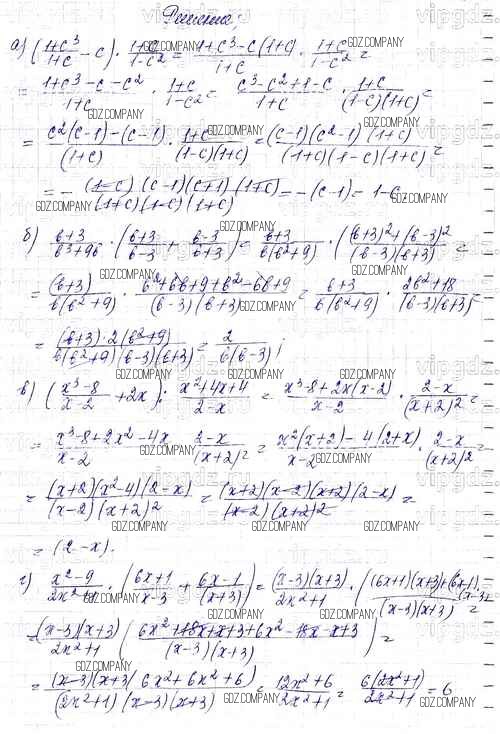 Решение,
а) (1+c³/1+c - c) · 1+c/1-c² = 1+c³-c(1+c)/1+c · 1+c/1-c² =
= 1+c³-c-c²/1+c · 1+c/1-c² = c³-c²+1-c/1+c · 1+c/(1-c)(1+c) =
= c²(c-1)-(c-1)/(1+c) · 1+c/(1-c)(1+c) = (c-1)(c²-1)(1+c)/(1+c)(1-c)(1+c) =
= - (1-c)(c-1)(c+1)(1+c)/(1+c)(1-c)(1+c) = -(c-1) = 1-c.
б) в+3/в³+9в · (в+3/в-3 + в-3/в+3) = в+3/в(в²+9) · ((в+3)²+(в-3)²/(в-3)(в+3)) =
= (в+3)/в(в²+9) · в²+6в+9+в²-6в+9/(в-3)(в+3) = в+3/в(в²+9) · 2в²+18/(в-3)(в+3) =
= (в+3)·2(в²+9)/в(в²+9)(в-3)(в+3) = 2/в(в-3);
в) (x³-8/x-2 + 2x) : x²+4x+4/2-x = x³-8+2x(x-2)/x-2 · 2-x/(x+2)² =
= x³-8+2x²-4x/x-2 · 2-x/(x+2)² = x²(x+2)-4(2+x)/x-2 · 2-x/(x+2)² =
= (x+2)(x²-4)(2-x)/(x-2)(x+2)² = (x+2)(x-2)(x+2)(2-x)/(x-2)(x+2)² =
= (2-x).
г) x²-9/2x²+1 · (6x+1/x-3 + 6x-1/(x+3)) = (x-3)(x+3)/2x²+1 · ((6x+1)(x+3)+(6x-1)(x-3)/(x-3)(x+3)) =
= (x-3)(x+3)/2x²+1 (6x²+18x+x+3+6x²-18x-x+3/(x-3)(x+3)) =
= (x-3)(x+3)(6x²+6x²+6)/(2x²+1)(x-3)(x+3) = 12x²+6/2x²+1 = 6(2x²+1)/2x²+1 = 6